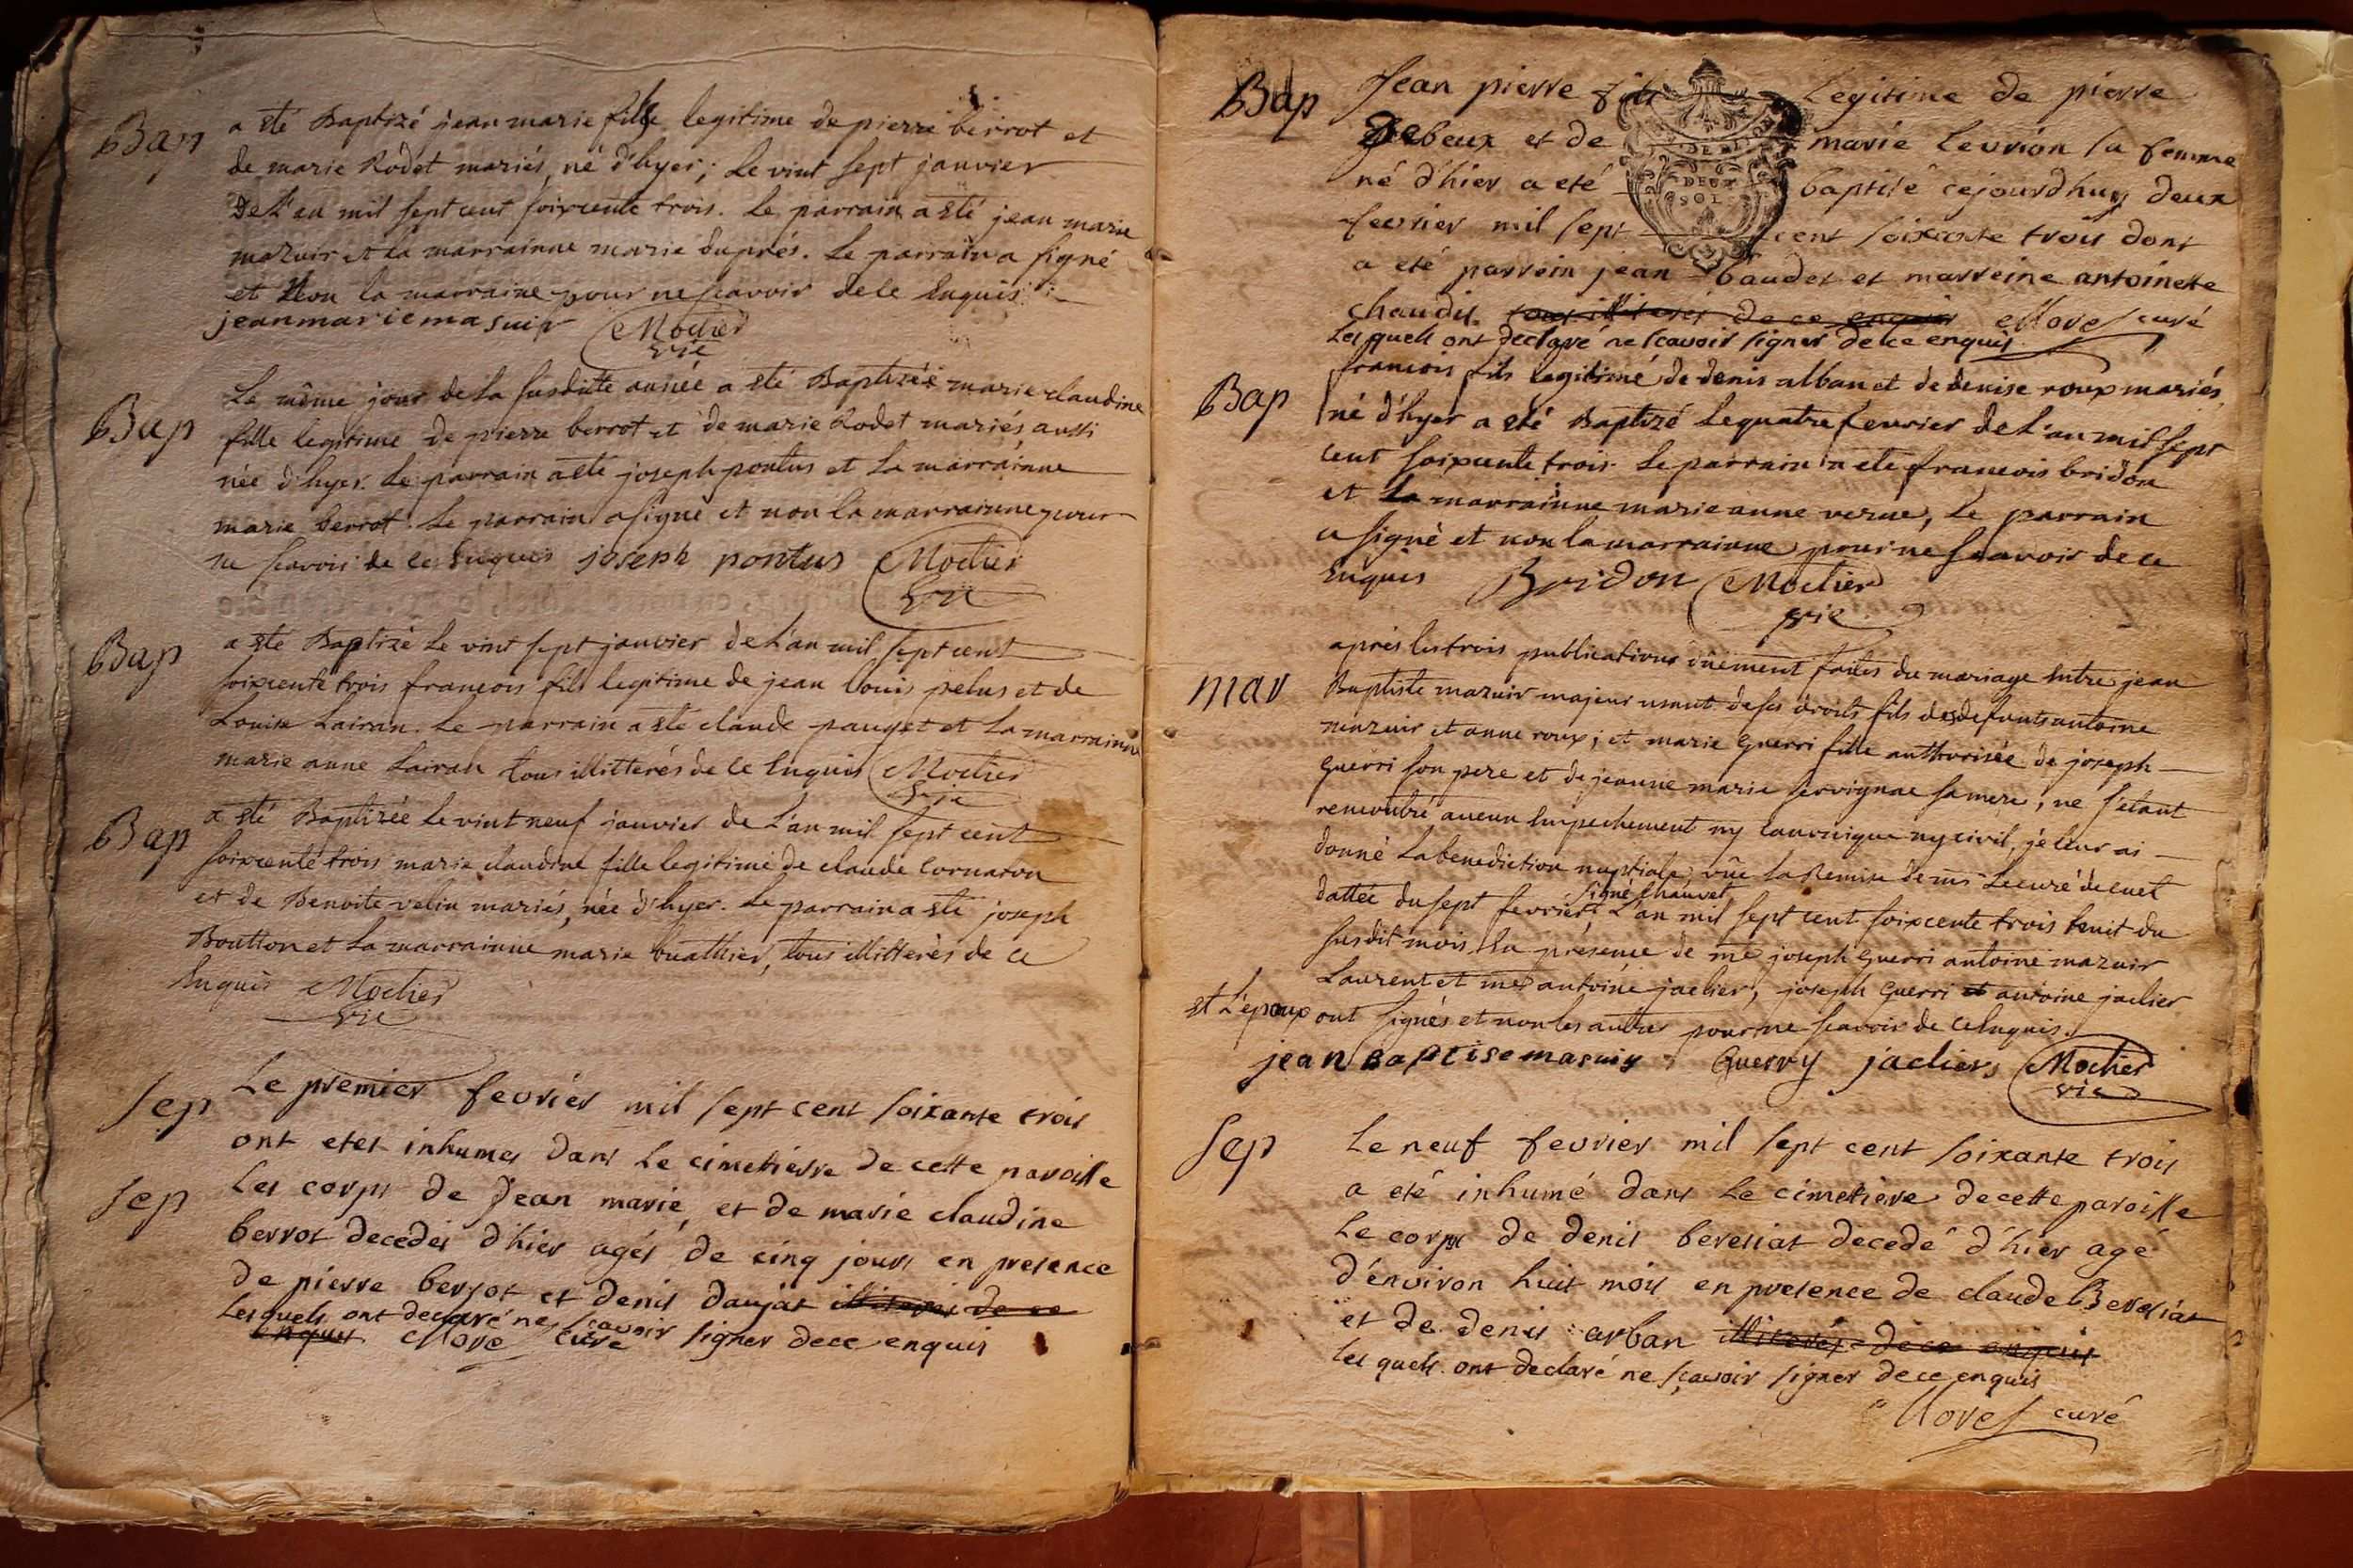 Bap
a été Baptizé jean marie fille legitime de pierre berrot et
de marie Rodet mariés, né d'hyer; le vint sept janvier
De l'an mil sept cent soixcente trois. le parrain a été jean marie
mazuir et la marrainne marie duprés. le parrain a signé
et Non la marraine pour ne scavoir de ce Enquis
jeanmarie masuir Moctier
vic
Bap
Le même jour de la susditte année a été Baptizée marie claudine
fille legitime de pierre berrot et de marie Rodet mariés, aussi
née d'hyer. le parrain a été joseph pontus et la marrainne
marie berrot. le parrain a signé et non la marrainne pour
ne scavoir de ce Enquis joseph pontus Moctier
vic
Bap
a été Baptizé le vint sept janvier de l'an mil sept cent
soixcente trois francois fils legitime de jean louis pelus et de
Louise Lairan. le parrain a été claude pauget et la marrainne
marie anne Lairan tous illitterés de ce Enquis Moctier
vic
Bap
a été Baptizée le vint neuf janvier de l'an mil sept cent
soixcente trois marie claudine fille legitime de claude Cornaton
et de Benoite velin mariés, née d'hyer. le parrain a été joseph
Boutton et la marrainne marie buathier, tous illitterés de ce
Enquis Moctier
vic
Sep
Le premier fevrier mil sept cent soixante trois
ont etes inhumes dans le cimetierre de cette paroisse
Sep
Les corps de Jean marie, et de marie claudine
berrot decedés d'hier agés de cinq jours en presence
de pierre berrot et denis daujat illiterés de ce
Lesquels ont declaré ne scavoir signer de ce enquis
enquis More curé
Bap
Jean pierre fils Legitime de pierre
Debeux et de marie Levrion sa femme
né d'hier a eté baptisé cejourdhuy deux
fevrier mil sept cent soixante trois dont
DEUX
SOL
a eté parrein jean baudet et marreine antoinette
chaudis. tous illiterés de ce enquis More curé
Lesquels ont declaré ne scavoir signer de ce enquis
Bap
francois fils legitime de denis alban et de denise roux mariés
né d'hyer a été Baptizé le quatre fevrier de l'an mil sept
cent soixcente trois. le parrain a eté francois bridon
et La marrainne marie anne verne, le parrain
a signé et non la marrainne pour ne scavoir de ce
Enquis Bridon Moctier
vic
mar
aprés les trois publications düement faites du mariage Entre jean
Baptiste mazuir majeur usant de ses droits fils des defunts antoine
mazuir et anne roux; et marie guerri fille authorisée de joseph
guerri son pere et de jeanne marie servignac sa mere, ne s'etant
rencontré aucun Empechement ny canonique ny civil, je leur ai
donné la benediction nuptiale, vüe la Remise de mr le curé de cuet
signé chauvet
dattée du sept fevrier L'an mil sept cent soixcente trois huit du
susdit mois En présence de me joseph guerri antoine mazuir
Laurent et me antoine jaclier, joseph guerri et antoine jaclier
et L'epoux ont signés et non les autres pour ne scavoir de ce Enquis.
jean Baptise masuir Guerry jacliers Moctier
vic
Sep
Le neuf fevrier mil sept cent soixante trois
a eté inhumé dans le cimetiere de cette paroisse
Le corps de denis beresiat decedé d'hier agé
d'environ huit mois en presence de claude Beresiat
et de denis arban illiterés de ce enquis
les quels ont declaré ne scavoir signer de ce enquis
More curé